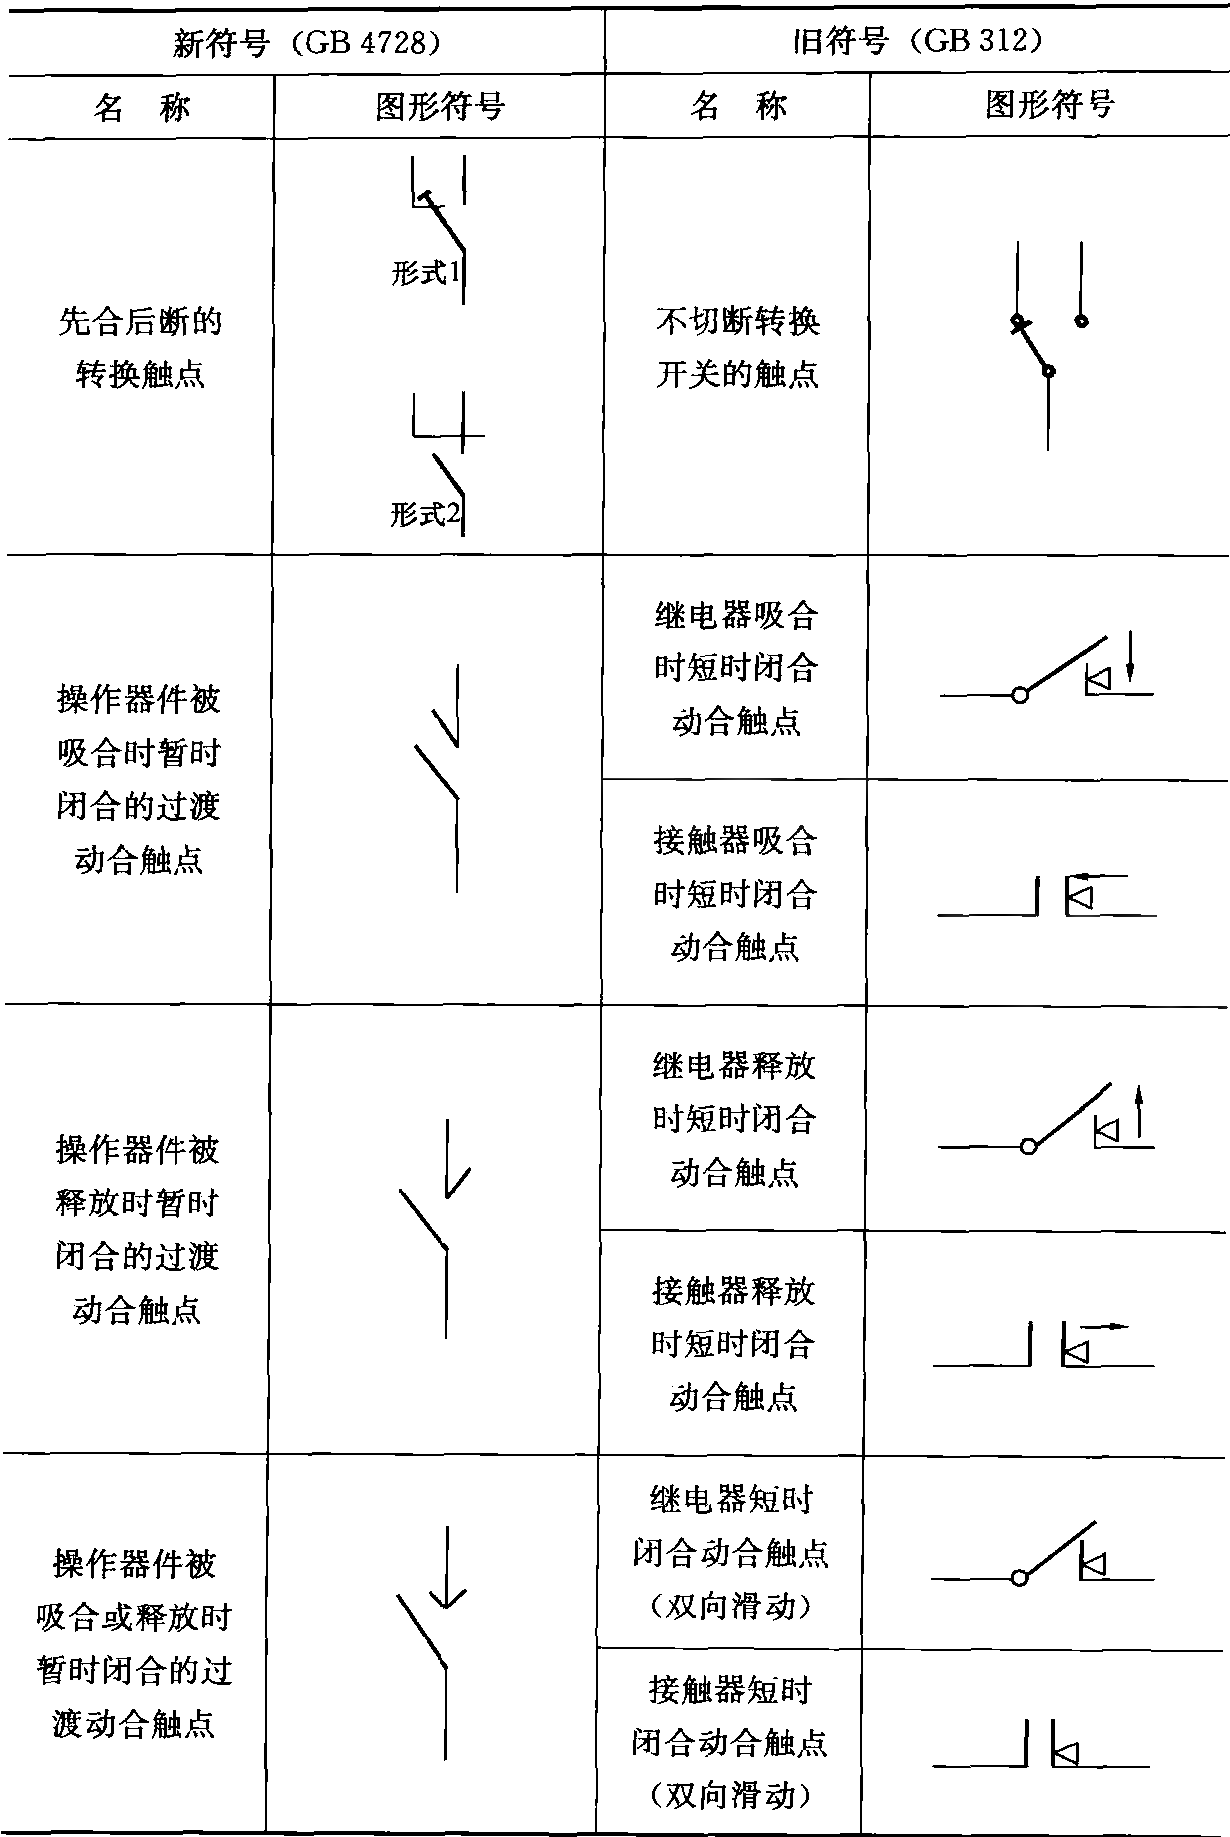 新符号（GB 4728）
旧符号（GB 312）
名 称
图形符号
名 称
图形符号
先合后断的
转换触点
形式1
形式2
不切断转换
开关的触点
操作器件被
吸合时暂时
闭合的过渡
动合触点
继电器吸合
时短时闭合
动合触点
接触器吸合
时短时闭合
动合触点
操作器件被
释放时暂时
闭合的过渡
动合触点
继电器释放
时短时闭合
动合触点
接触器释放
时短时闭合
动合触点
操作器件被
吸合或释放时
暂时闭合的过
渡动合触点
继电器短时
闭合动合触点
（双向滑动）
接触器短时
闭合动合触点
（双向滑动）